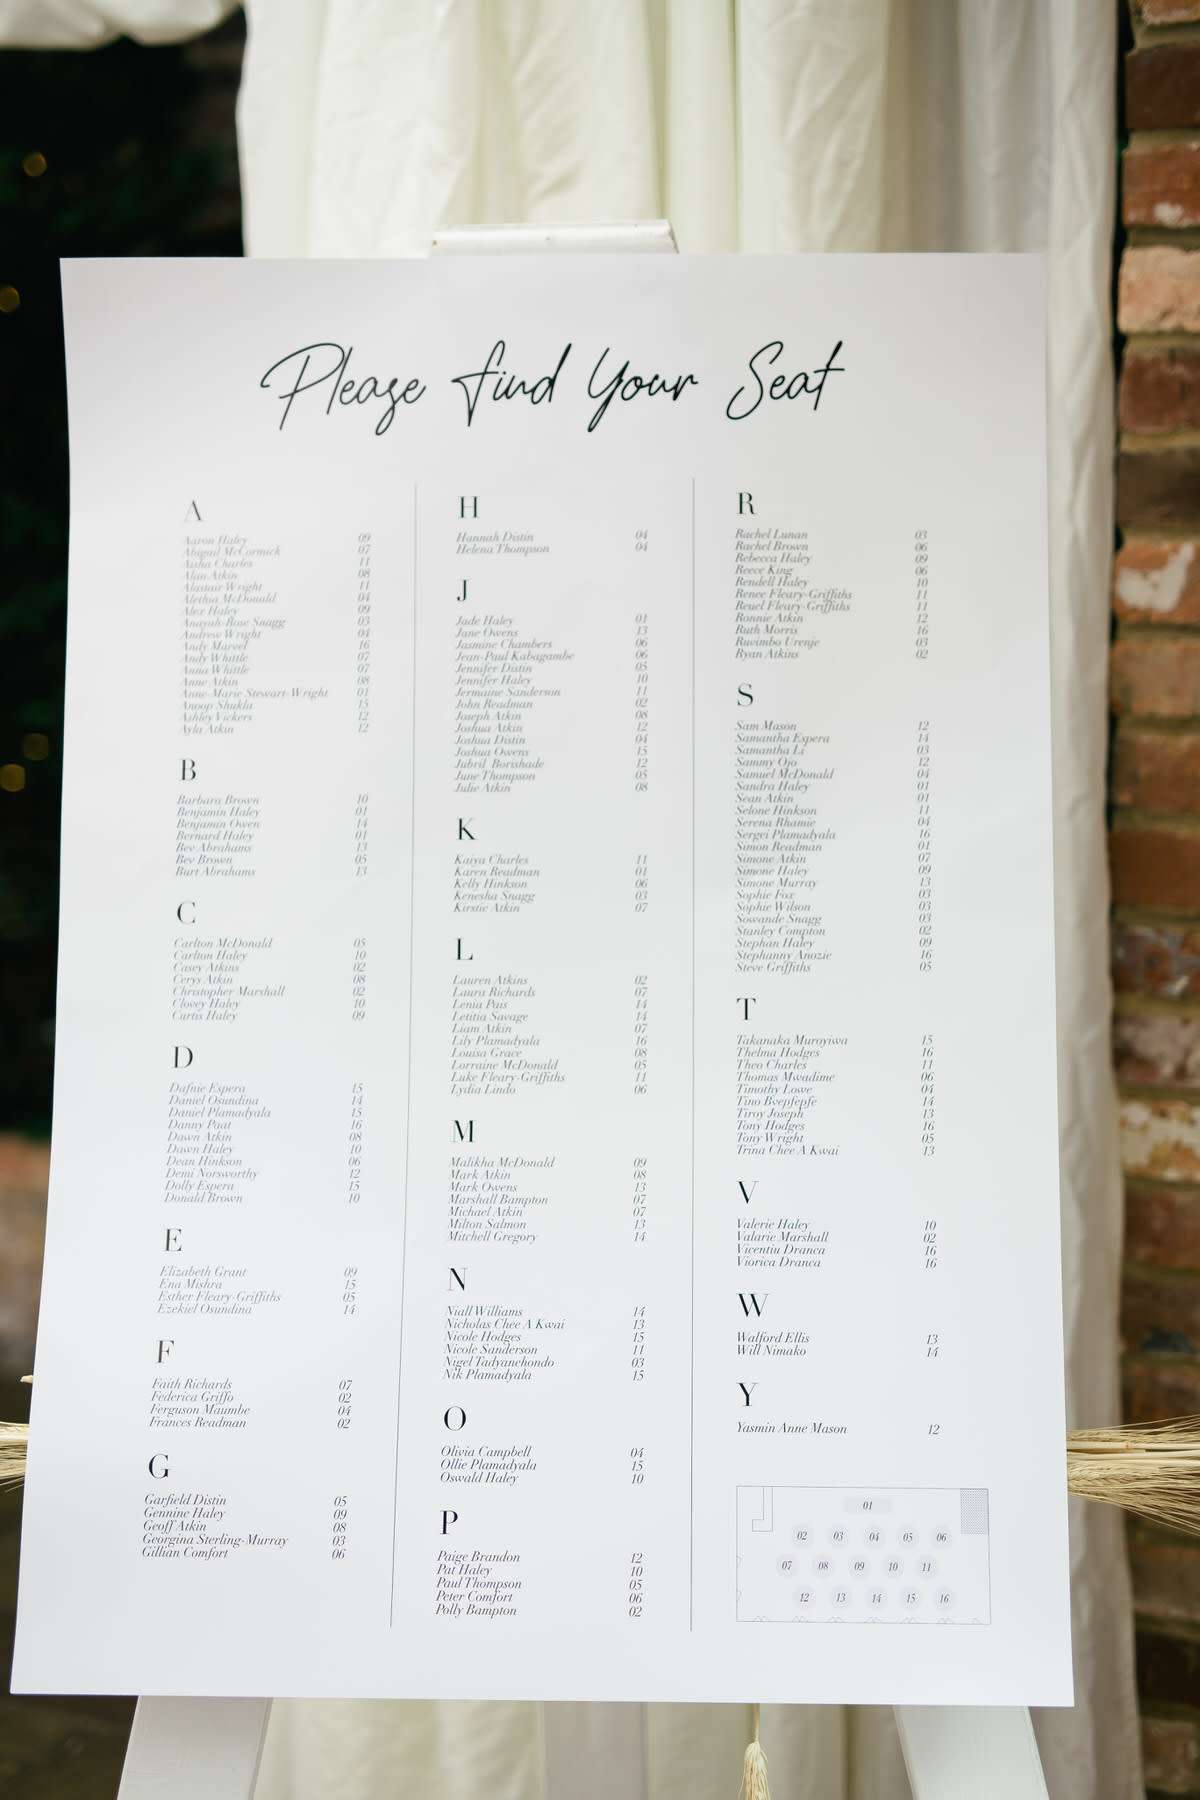 Please find Your Seat
A
Aaron Haley 09
Abigail McCormick 07
Aisha Charles 11
Alan Atkin 08
Alastair Wright 11
Alethia McDonald 04
Alex Haley 09
Anayah-Rose Snagg 03
Andrew Wright 04
Andy Marvel 16
Andy Whittle 07
Anna Whittle 07
Anne Atkin 08
Anne-Marie Stewart-Wright 01
Anoop Shukla 15
Ashley Vickers 12
Ayla Atkin 12
B
Barbara Brown 10
Benjamin Haley 01
Benjamin Owen 14
Bernard Haley 01
Bev Abrahams 13
Bev Brown 05
Burt Abrahams 13
C
Carlton McDonald 05
Carlton Haley 10
Casey Atkins 02
Cerys Atkin 08
Christopher Marshall 02
Clovey Haley 10
Curtis Haley 09
D
Dafnie Espera 15
Daniel Osundina 14
Daniel Plamadyala 15
Danny Paat 16
Dawn Atkin 08
Dawn Haley 10
Dean Hinkson 06
Demi Norsworthy 12
Dolly Espera 15
Donald Brown 10
E
Elizabeth Grant 09
Ena Mishra 15
Esther Fleary-Griffiths 05
Ezekiel Osundina 14
F
Faith Richards 07
Federica Griffo 02
Ferguson Maumbe 04
Frances Readman 02
G
Garfield Distin 05
Gennine Haley 09
Geoff Atkin 08
Georgina Sterling-Murray 03
Gillian Comfort 06
H
Hannah Distin 04
Helena Thompson 04
J
Jade Haley 01
Jane Owens 13
Jasmine Chambers 06
Jean-Paul Kabagambe 06
Jennifer Distin 05
Jennifer Haley 10
Jermaine Sanderson 11
John Readman 02
Joseph Atkin 08
Joshua Atkin 12
Joshua Distin 04
Joshua Owens 15
Jubril Borishade 12
June Thompson 05
Julie Atkin 08
K
Kaiya Charles 11
Karen Readman 01
Kelly Hinkson 06
Kenesha Snagg 03
Kirstie Atkin 07
L
Lauren Atkins 02
Laura Richards 07
Lenia Pais 14
Letitia Savage 14
Liam Atkin 07
Lily Plamadyala 16
Louisa Grace 08
Lorraine McDonald 05
Luke Fleary-Griffiths 11
Lydia Lindo 06
M
Malikha McDonald 09
Mark Atkin 08
Mark Owens 13
Marshall Bampton 07
Michael Atkin 07
Milton Salmon 13
Mitchell Gregory 14
N
Niall Williams 14
Nicholas Chee A Kwai 13
Nicole Hodges 15
Nicole Sanderson 11
Nigel Tadyanehondo 03
Nik Plamadyala 15
O
Olivia Campbell 04
Ollie Plamadyala 15
Oswald Haley 10
P
Paige Brandon 12
Pat Haley 10
Paul Thompson 05
Peter Comfort 06
Polly Bampton 02
R
Rachel Lunan 03
Rachel Brown 06
Rebecca Haley 09
Reece King 06
Rendell Haley 10
Renee Fleary-Griffiths 11
Reuel Fleary-Griffiths 11
Ronnie Atkin 12
Ruth Morris 16
Ruvimbo Urenje 03
Ryan Atkins 02
S
Sam Mason 12
Samantha Espera 14
Samantha Li 03
Sammy Ojo 12
Samuel McDonald 04
Sandra Haley 01
Sean Atkin 01
Selone Hinkson 11
Serena Rhamie 04
Sergei Plamadyala 16
Simon Readman 01
Simone Atkin 07
Simone Haley 09
Simone Murray 13
Sophie Fox 03
Sophie Wilson 03
Sowande Snagg 03
Stanley Compton 02
Stephan Haley 09
Stephanny Anozie 16
Steve Griffiths 05
T
Takanaka Muroyiwa 15
Thelma Hodges 16
Theo Charles 11
Thomas Mwadime 06
Timothy Lowe 04
Tino Bvepfepfe 14
Tiroy Joseph 13
Tony Hodges 16
Tony Wright 05
Trina Chee A Kwai 13
V
Valerie Haley 10
Valarie Marshall 02
Vicentiu Dranca 16
Viorica Dranca 16
W
Walford Ellis 13
Will Nimako 14
Y
Yasmin Anne Mason 12
01
02 03 04 05 06
07 08 09 10 11
12 13 14 15 16